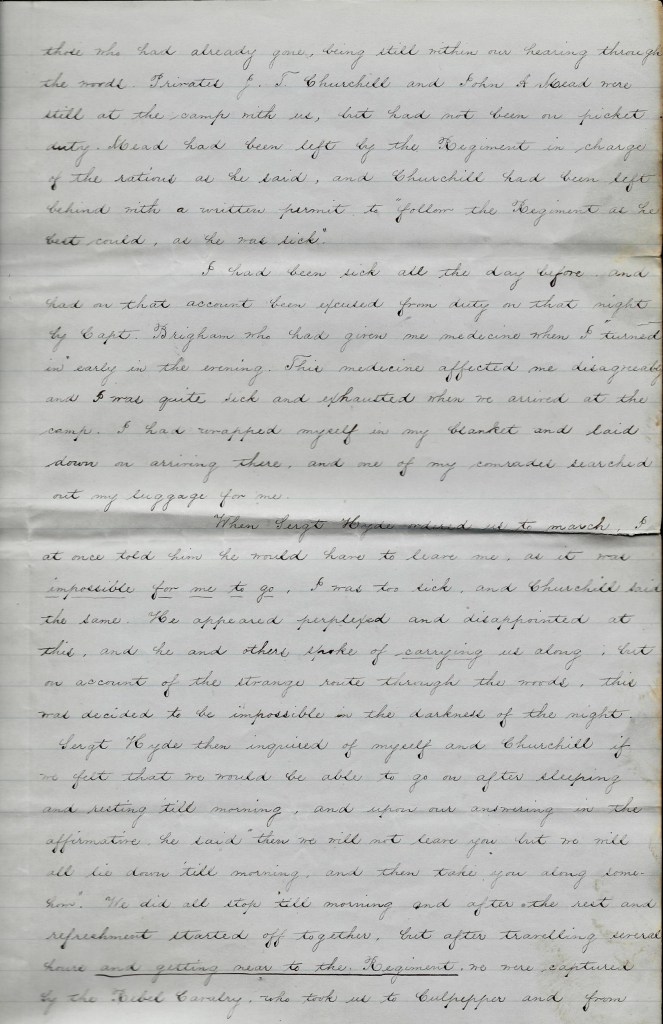 those who had already gone, being still within our hearing through
the woods. Privates J. T. Churchill and John A Mead were
still at the camp with us, but had not been on picket
duty. Mead had been left by the Regiment in charge
of the rations as he said, and Churchill had been left
behind with a written permit to "follow the Regiment as he
best could, as he was sick".
I had been sick all the day before and
had on that account been excused from duty on that night
by Capt. Brigham who had given me medecine when I "turned
in" early in the evening. This medecine affected me disagreeably
and I was quite sick and exhausted when we arrived at the
camp. I had wrapped myself in my blanket and laid
down on arriving there, and one of my comrades searched
out my luggage for me.
When Sergt Hyde ordered us to march, I
at once told him he would have to leave me, as it was
impossible for me to go, I was too sick, and Churchill said
the same. He appeared perplexed and disappointed at
this, and he and others spoke of carrying us along; but
on account of the strange route through the woods, this
was decided to be impossible in the darkness of the night.
Sergt Hyde then inquired of myself and Churchill if
we felt that we would be able to go on after sleeping
and resting 'till morning, and upon our answering in the
affirmative he said "then we will not leave you but we will
all lie down 'till morning, and then take you along some-
how". We did all stop 'till morning and after the rest and
refreshment started off together, but after travelling several
hours and getting near to the Regiment, we were captured
by the Rebel Cavalry, who took us to Culpepper and from